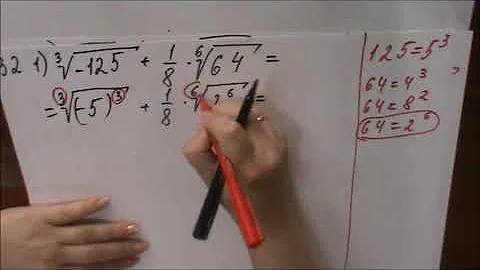 32 1) ∛-125 + 1/8 · ⁶√64 =
= ∛(-5)³ + 1/8 · ⁶√2⁶ =
125 = 5³
64 = 4³
64 = 8²
64 = 2⁶